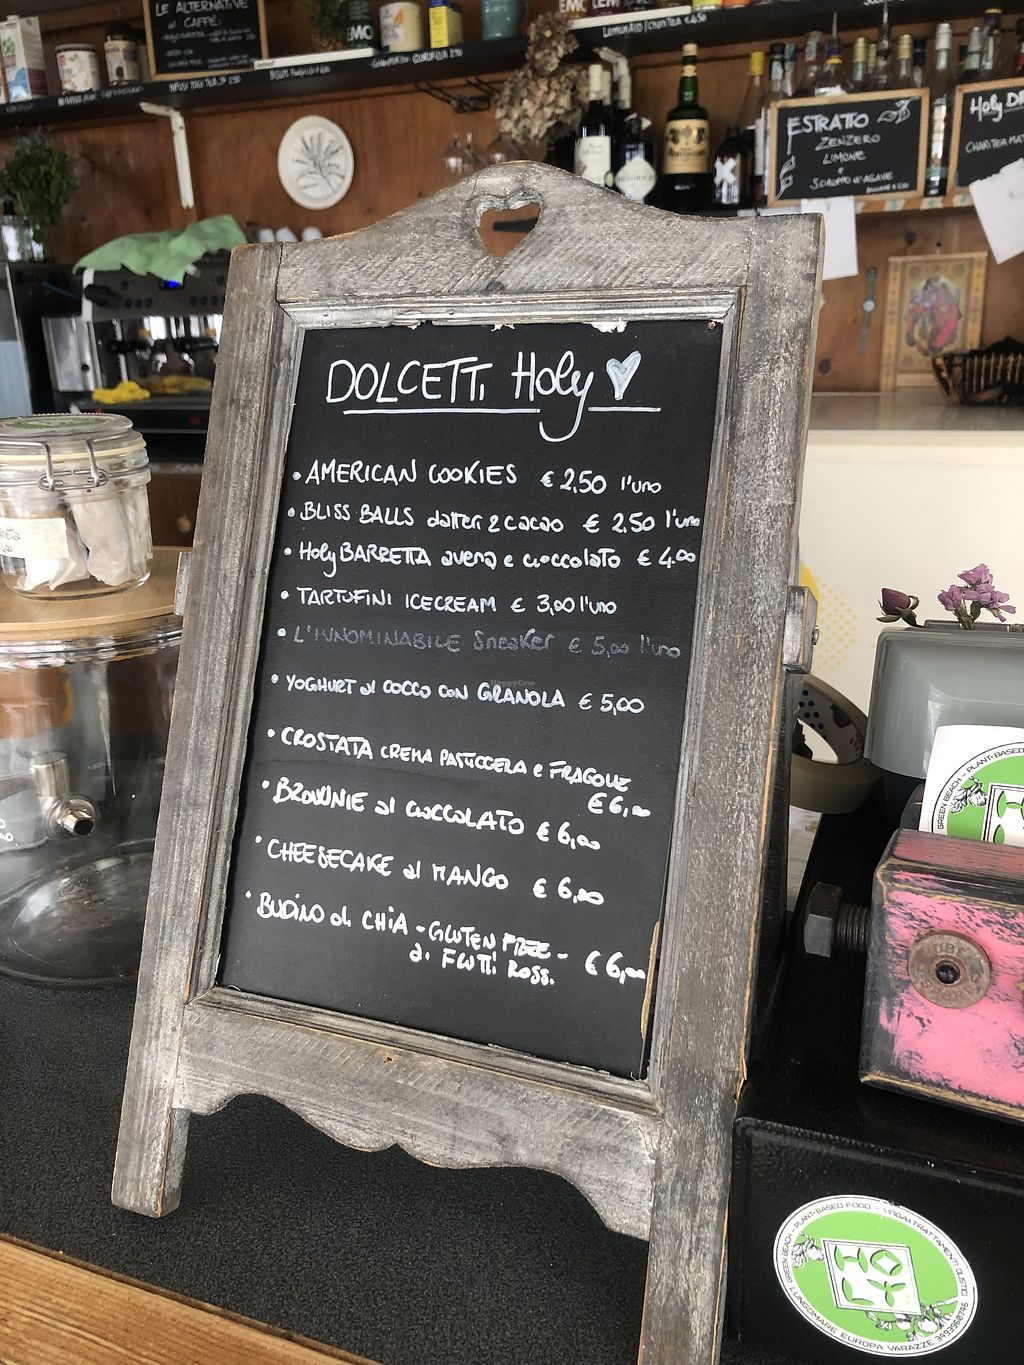 LE ALTERNATIVE
al CAFFÈ:
EMO
ESTRATTO
ZENZERO
LIMONE
e
SCIROPPO d'AGAVE
Holy
DOLCETTi Holy
• AMERICAN COOKIES € 2,50 l'uno
• BLISS BALLS datteri e cacao € 2.50 l'uno
• Holy BARRETTA avena e cioccolato € 4,00
• TARTUFINI ICECREAM € 3,00 l'uno
• L'INNOMINABILE Sneaker € 5,00 l'uno
HappyCow
• YOGHURT al COCCO con GRANOLA € 5,00
• CROSTATA CREMA PASTICCERA e FRAGOLE
€ 6,00
• BROWNIE al CIOCCOLATO € 6,00
• CHEESECAKE al MANGO € 6,00
• BUDINO di CHIA - GLUTEN FREE -
ai FRUTTI ROSSI. € 6,00
GREEN BEACH - PLANT-BASED
GREEN BEACH - PLANT-BASED FOOD - YOGA&TRATTAMENTI OLISTICI
HOLY
LUNGOMARE EUROPA VARAZZE 3493960746